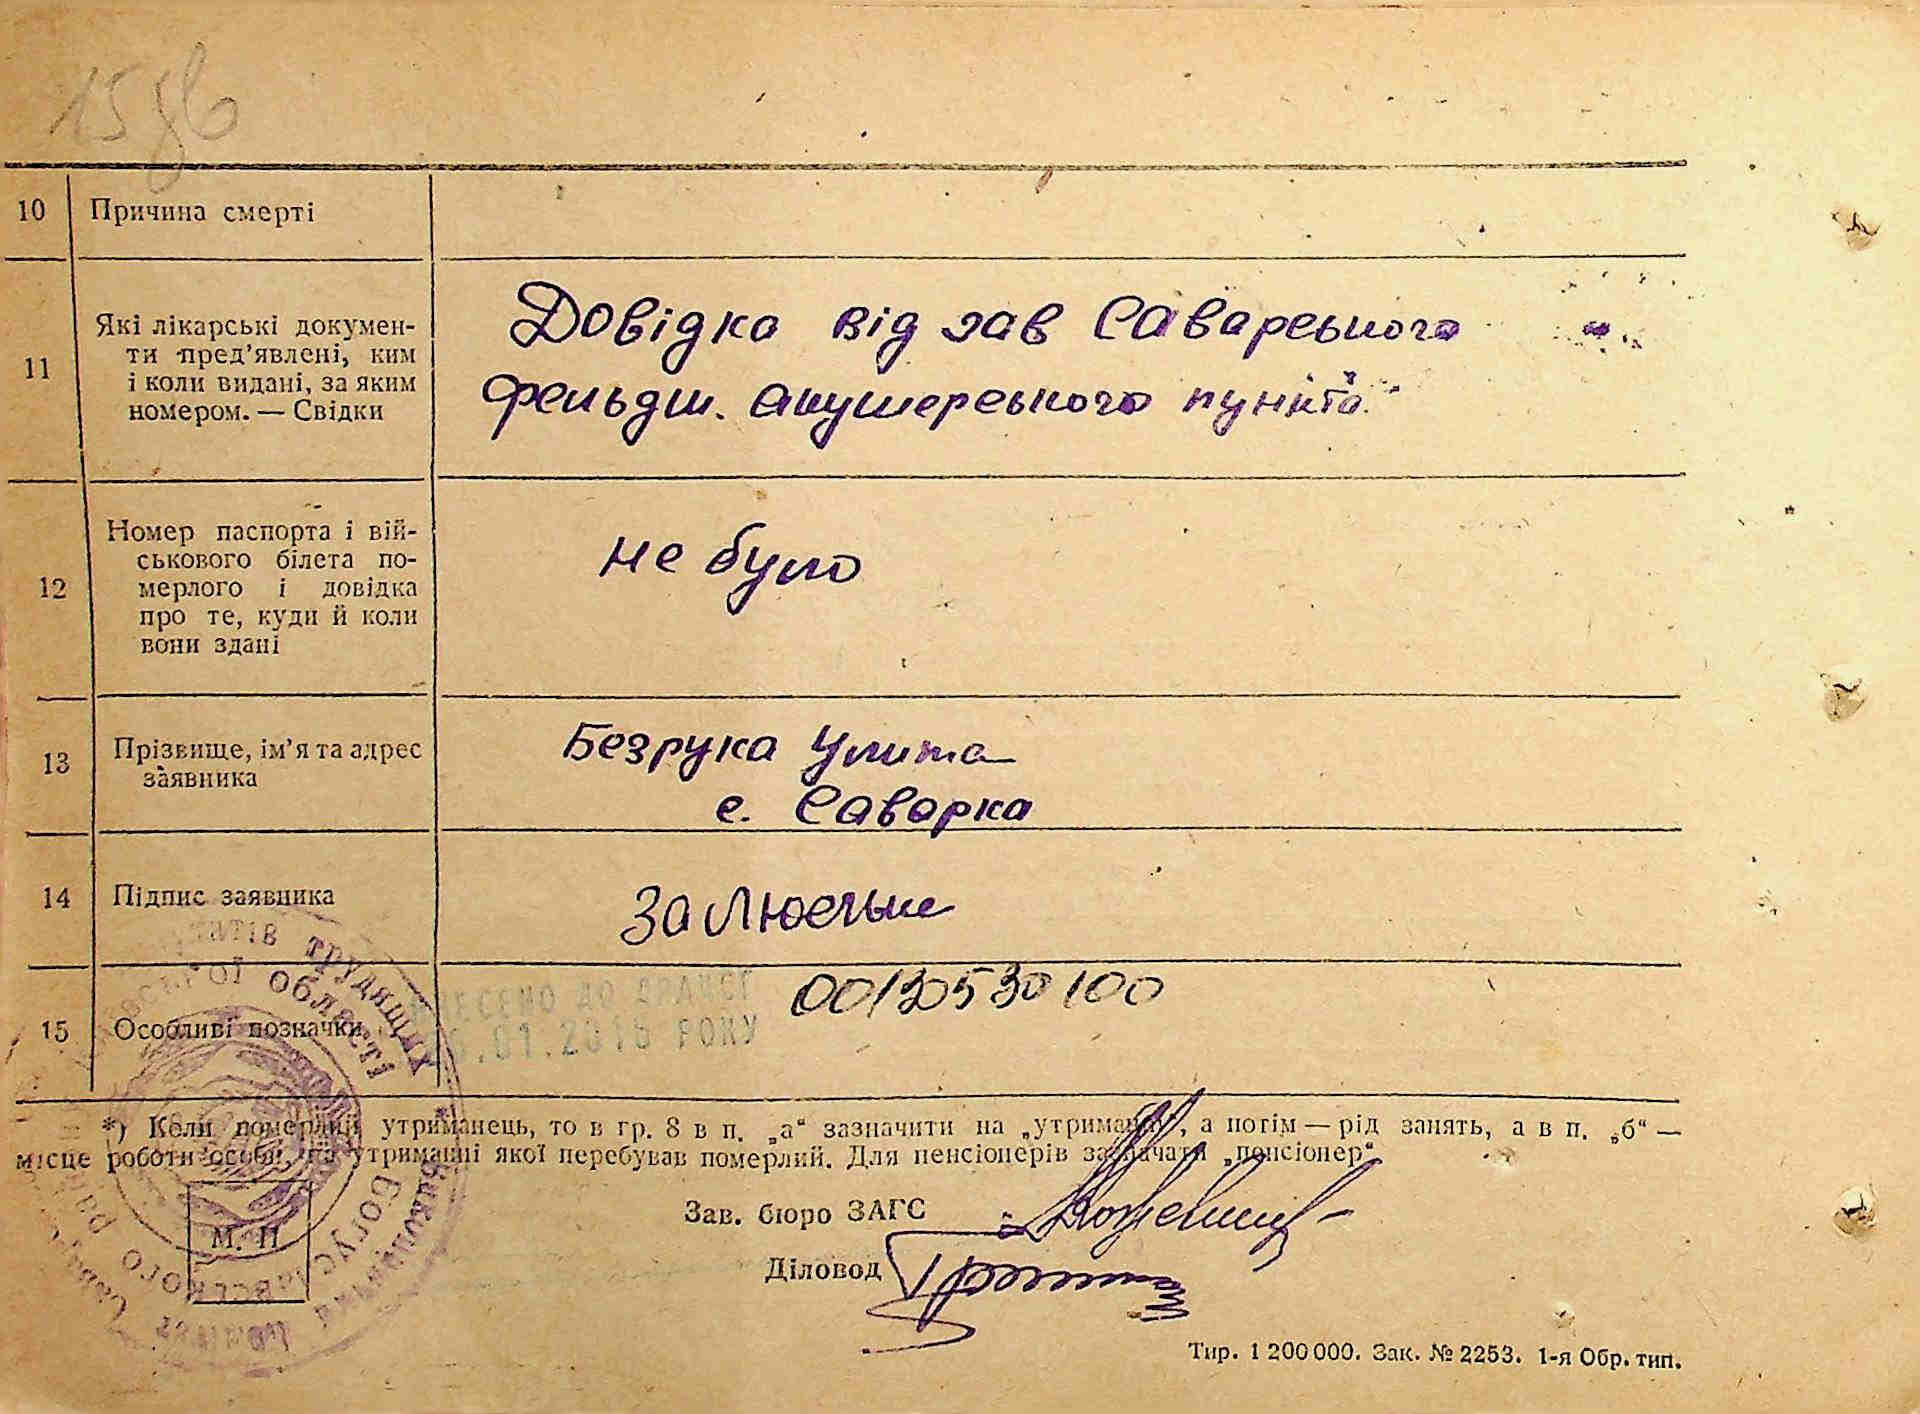 10 Причина смерті
11 Які лікарські докумен-
ти пред’явлені, ким
і коли видані, за яким
номером. — Свідки
Довідка від зав Саварського
фельдш. акушерського пункта
12 Номер паспорта і вій-
ськового білета по-
мерлого і довідка
про те, куди й коли
вони здані
не було
13 Прізвище, ім’я та адрес
заявника
Безрука Улита
с. Саварка
14 Підпис заявника
За
15 Особливі позначки
ВНЕСЕНО ДО ДРАЦСГ
.01.2018 РОКУ
00130530100
*) Коли померлий утриманець, то в гр. 8 в п. „а“ зазначити на „утриманні“, а потім — рід занять, а в п. „б“ —
місце роботи особи, на утриманні якої перебував померлий. Для пенсіонерів зазначати „пенсіонер“
Зав. бюро ЗАГС
Діловод
М. П
трудящих
області
Виконавчий
Богуславського
Тир. 1 200 000. Зак. № 2253. 1-я Обр. тип.